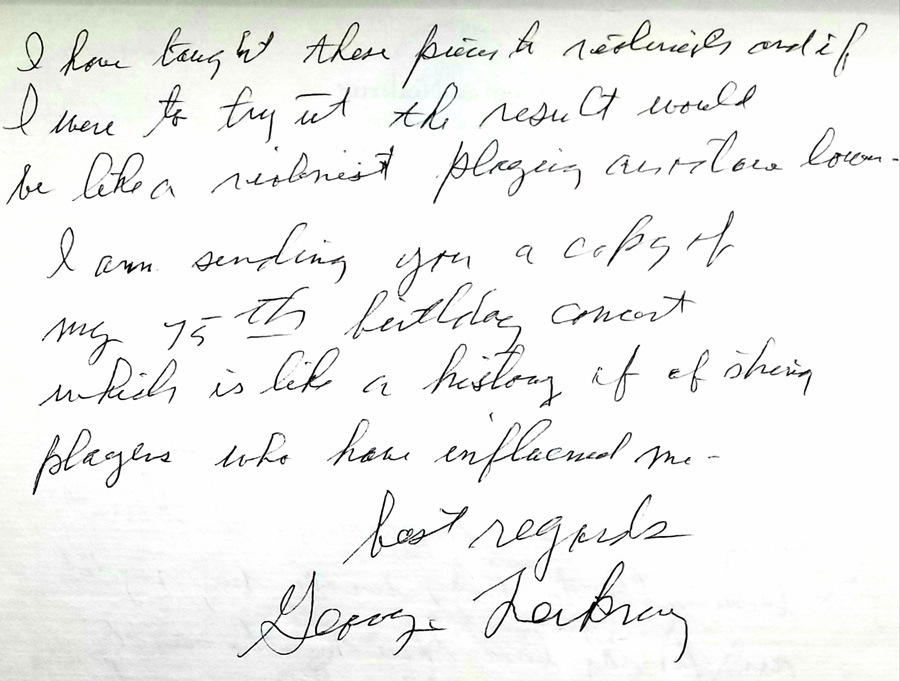 I have taught these pieces to violinists and if
I were to try it the result would
be like a violinist playing
I am sending you a copy of
my 75th birthday concert
which is like a history of of string
players who have influenced me -
best regards
George